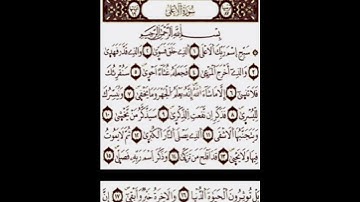 سُورَةُ الأَعْلَى
بِسْمِ اللَّهِ الرَّحْمَٰنِ الرَّحِيمِ
سَبِّحِ اسْمَ رَبِّكَ الْأَعْلَى ١ الَّذِي خَلَقَ فَسَوَّىٰ ٢ وَالَّذِي قَدَّرَ فَهَدَىٰ
٣ وَالَّذِي أَخْرَجَ الْمَرْعَىٰ ٤ فَجَعَلَهُ غُثَاءً أَحْوَىٰ ٥ سَنُقْرِئُكَ
فَلَا تَنسَىٰ ٦ إِلَّا مَا شَاءَ اللَّهُ إِنَّهُ يَعْلَمُ الْجَهْرَ وَمَا يَخْفَىٰ ٧ وَنُيَسِّرُكَ
لِلْيُسْرَىٰ ٨ فَذَكِّرْ إِن نَّفَعَتِ الذِّكْرَىٰ ٩ سَيَذَّكَّرُ مَن يَخْشَىٰ ١٠
وَيَتَجَنَّبُهَا الْأَشْقَى ١١ الَّذِي يَصْلَى النَّارَ الْكُبْرَىٰ ١٢ ثُمَّ لَا يَمُوتُ
فِيهَا وَلَا يَحْيَىٰ ١٣ قَدْ أَفْلَحَ مَن تَزَكَّىٰ ١٤ وَذَكَرَ اسْمَ رَبِّهِ فَصَلَّىٰ ١٥
بَلْ تُؤْثِرُونَ الْحَيَاةَ الدُّنْيَا ١٦ وَالْآخِرَةُ خَيْرٌ وَأَبْقَىٰ ١٧ إِنَّ